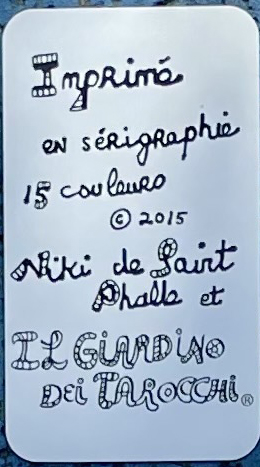 Imprimé
en sérigraphie
15 couleurs
© 2015
Niki de Saint
Phalle et
IL GiARDiNO
DEi TAROCCHi®